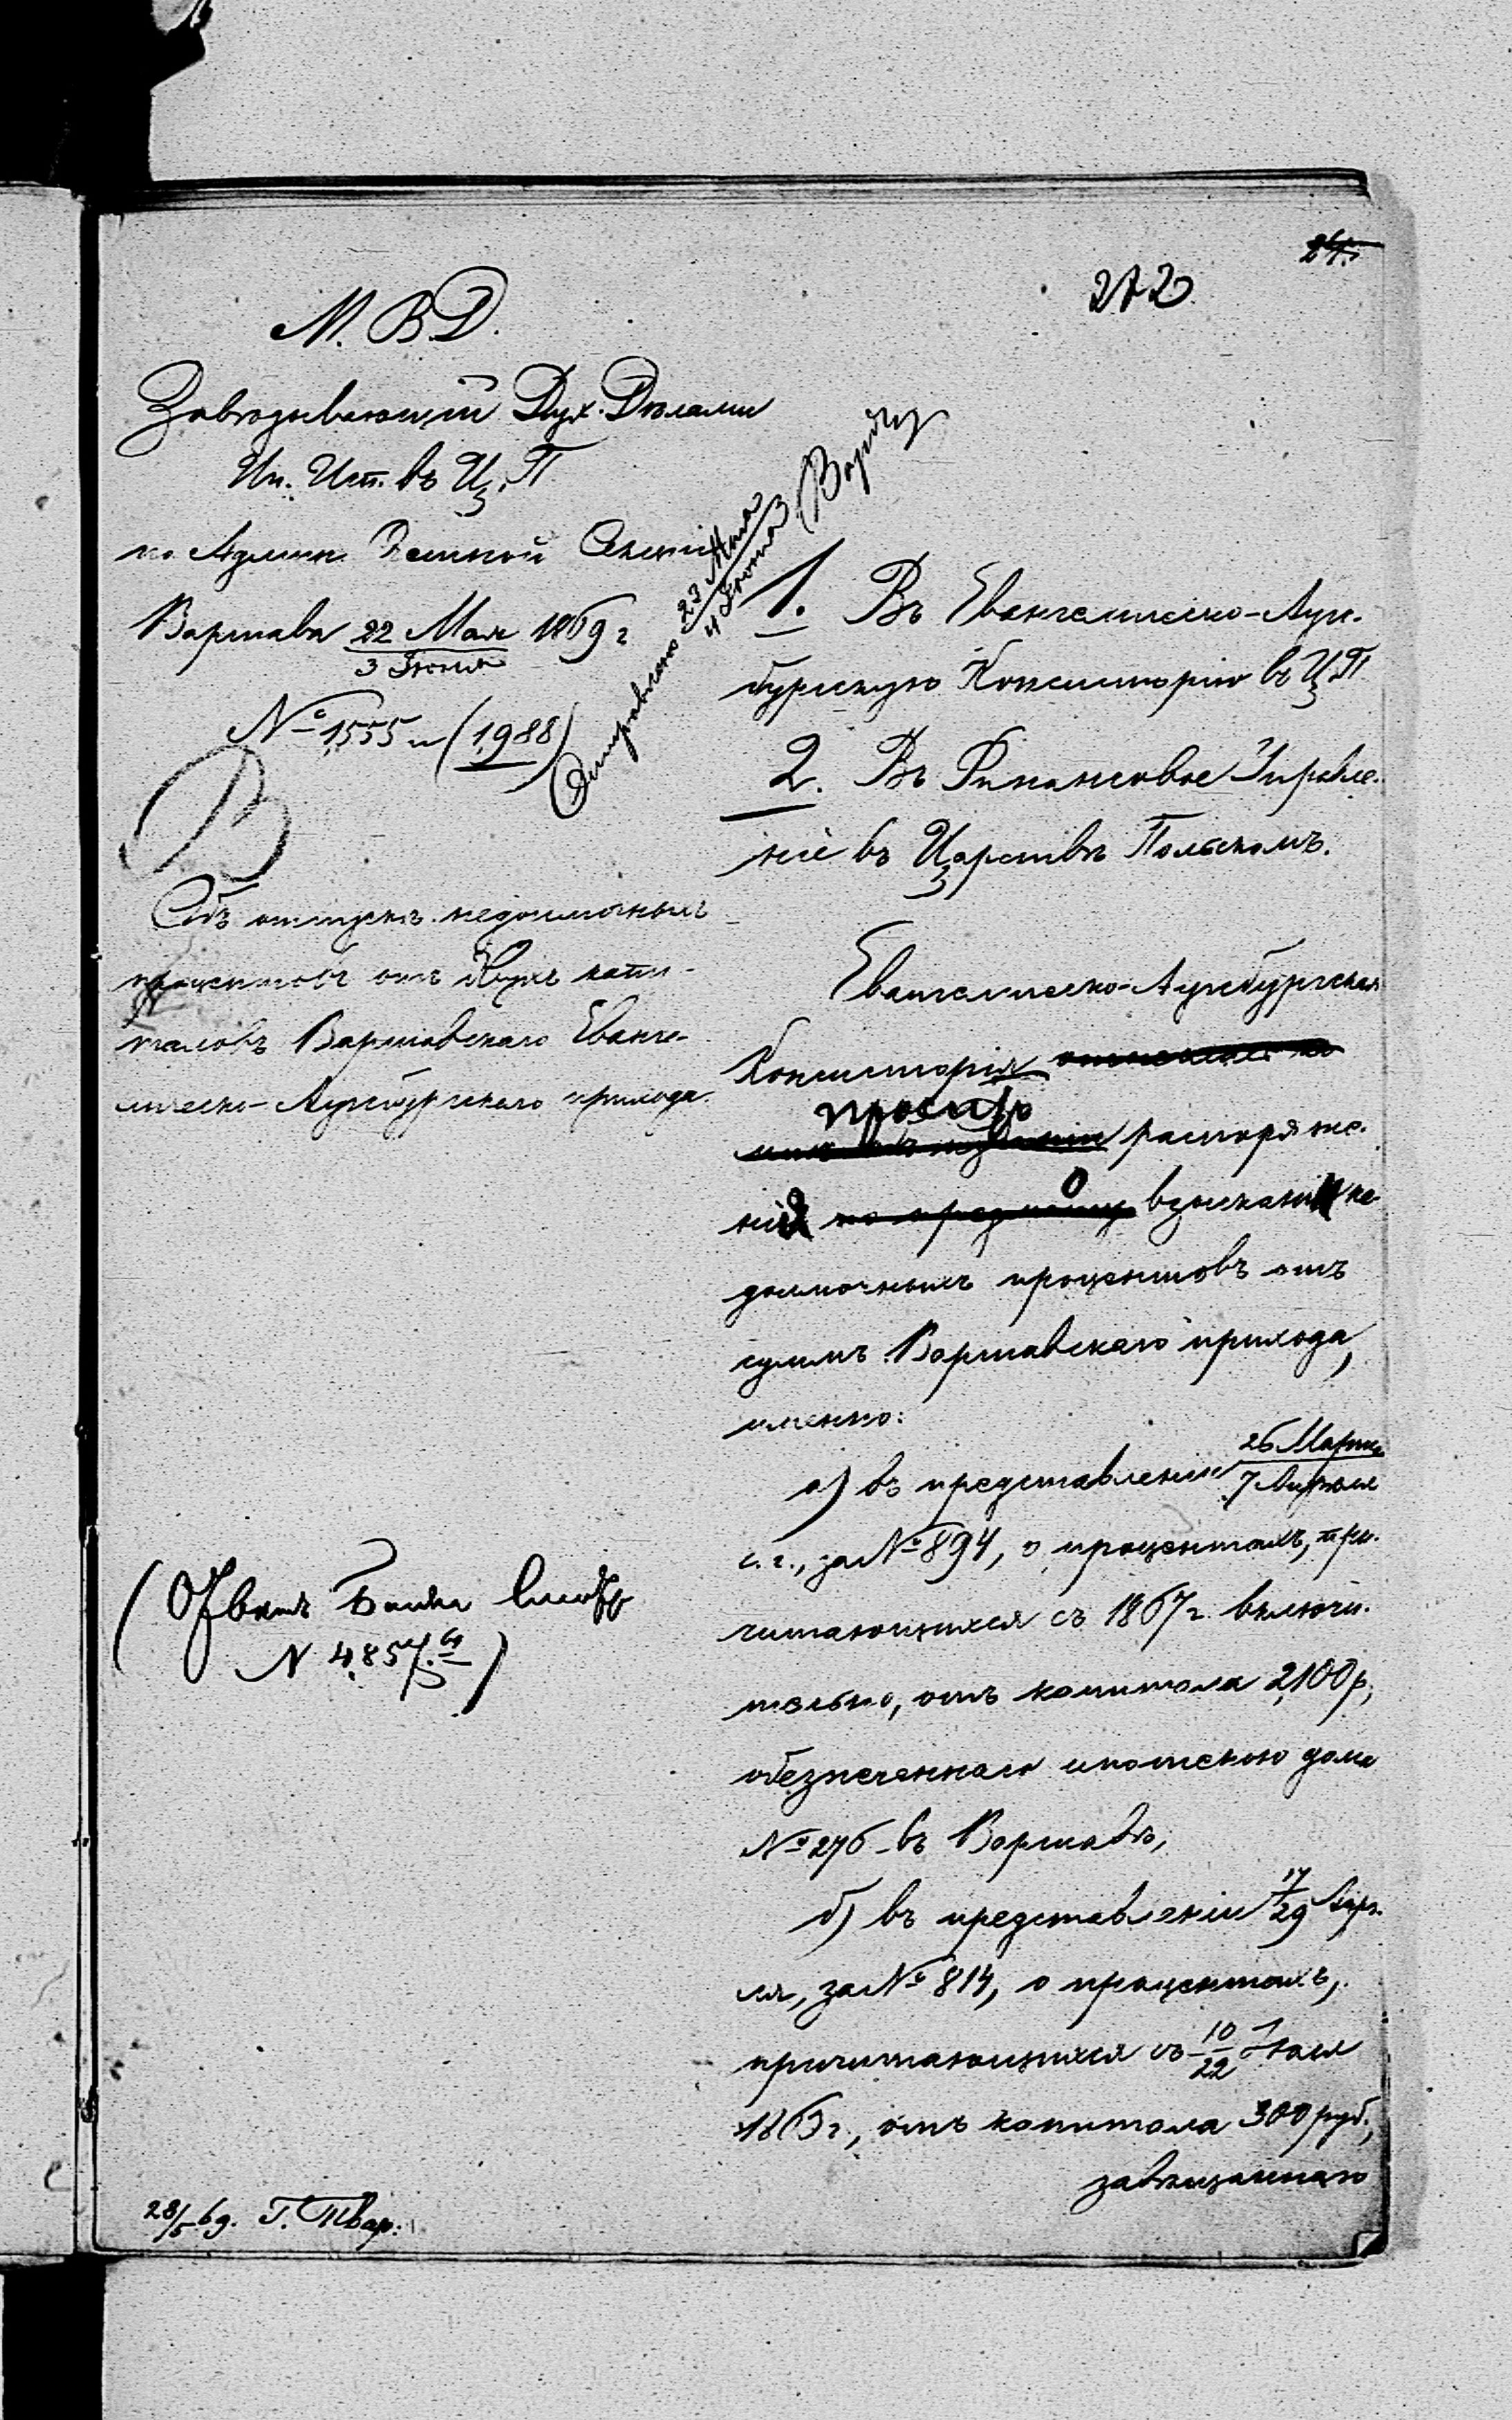 272
М. В. Д.
Завѣдывающій Дух. Дѣлами
Ин. Исп. въ Ц. П
по Админ. Секціи
Варшава 22 Мая 1869 г
3 Іюня
№ 1555 (1988)
Отправлено 23 Мая
4 Іюня
Объ отпускѣ недоимочныхъ
процентовъ отъ двухъ капи-
таловъ Варшавскаго Еванге-
лическо-Аугсбургскаго прихода.
(Банка
N 4857)
28/5 69.
1. Въ Евангелическо-Ауг.
бургскую Консисторію въ Ц П
2. Въ Финансовое Управле.
ніе въ Царствѣ Польскомъ.
Евангелическо-Аугсбургская
Консисторія
проситъ
распоряже.
нія о взысканіи не
доимочныхъ процентовъ отъ
суммъ Варшавскаго прихода,
именно:
а) въ представленіи 26 Марта
7 Апрѣля
с. г., за № 894, о процентахъ, при.
читающихся съ 1867 г. включи.
тельно, отъ капитала 2,100 р,
обезпеченнаго ипотекою дома
№ 276 въ Варшавѣ,
б) въ представленіи 17/29 Апрѣ.
ля, за № 814, о процентахъ,
причитающихся съ 10/22 Іюля
г., отъ капитала 300 руб.,
завѣщаннаго